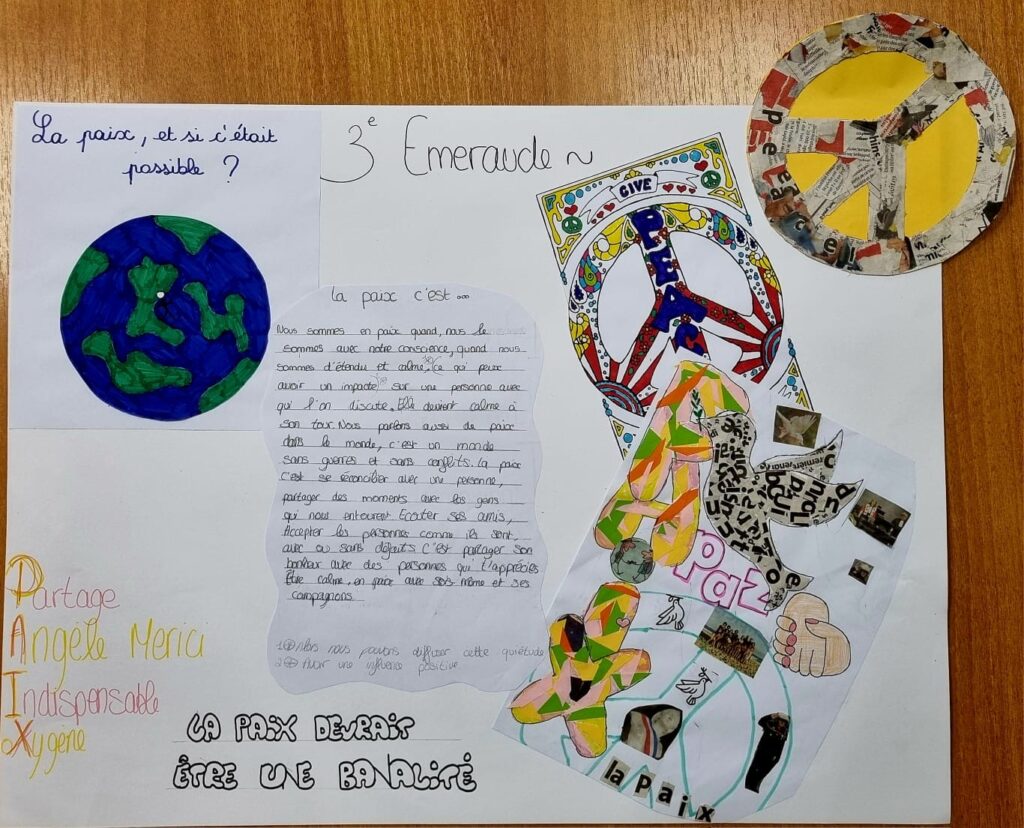 La paix, et si c'était
possible ?
3e Emeraude ~
GIVE
PEACE
la paix c'est ...
Nous sommes en paix quand, nous le
sommes avec notre conscience, quand nous
sommes d'étendu et calme. Ce qui peux
avoir un impacte sur une personne avec
qui l'on discute. Elle devient calme à
son tour. Nous parlons aussi de paix
dans le monde, c'est un monde
sans guerres et sans conflits. La paix
c'est se réconcilier avec une personne,
partager des moments avec les gens
qui nous entourent. Ecouter ses amis,
Accepter les personnes comme ils sont,
avec ou sans défauts C'est partager son
bonheur avec des personnes qui t'apprécies
Être calme, en paix avec sois même et ses
compagnons
1 Alors nous pouvons diffuser cette quiétude
2 Avoir une influence positive
Paz
Partage
Angèle Merici
Indispensable
oXygène
LA PAIX DEVRAIT
ÊTRE UNE BANALITÉ
la Paix